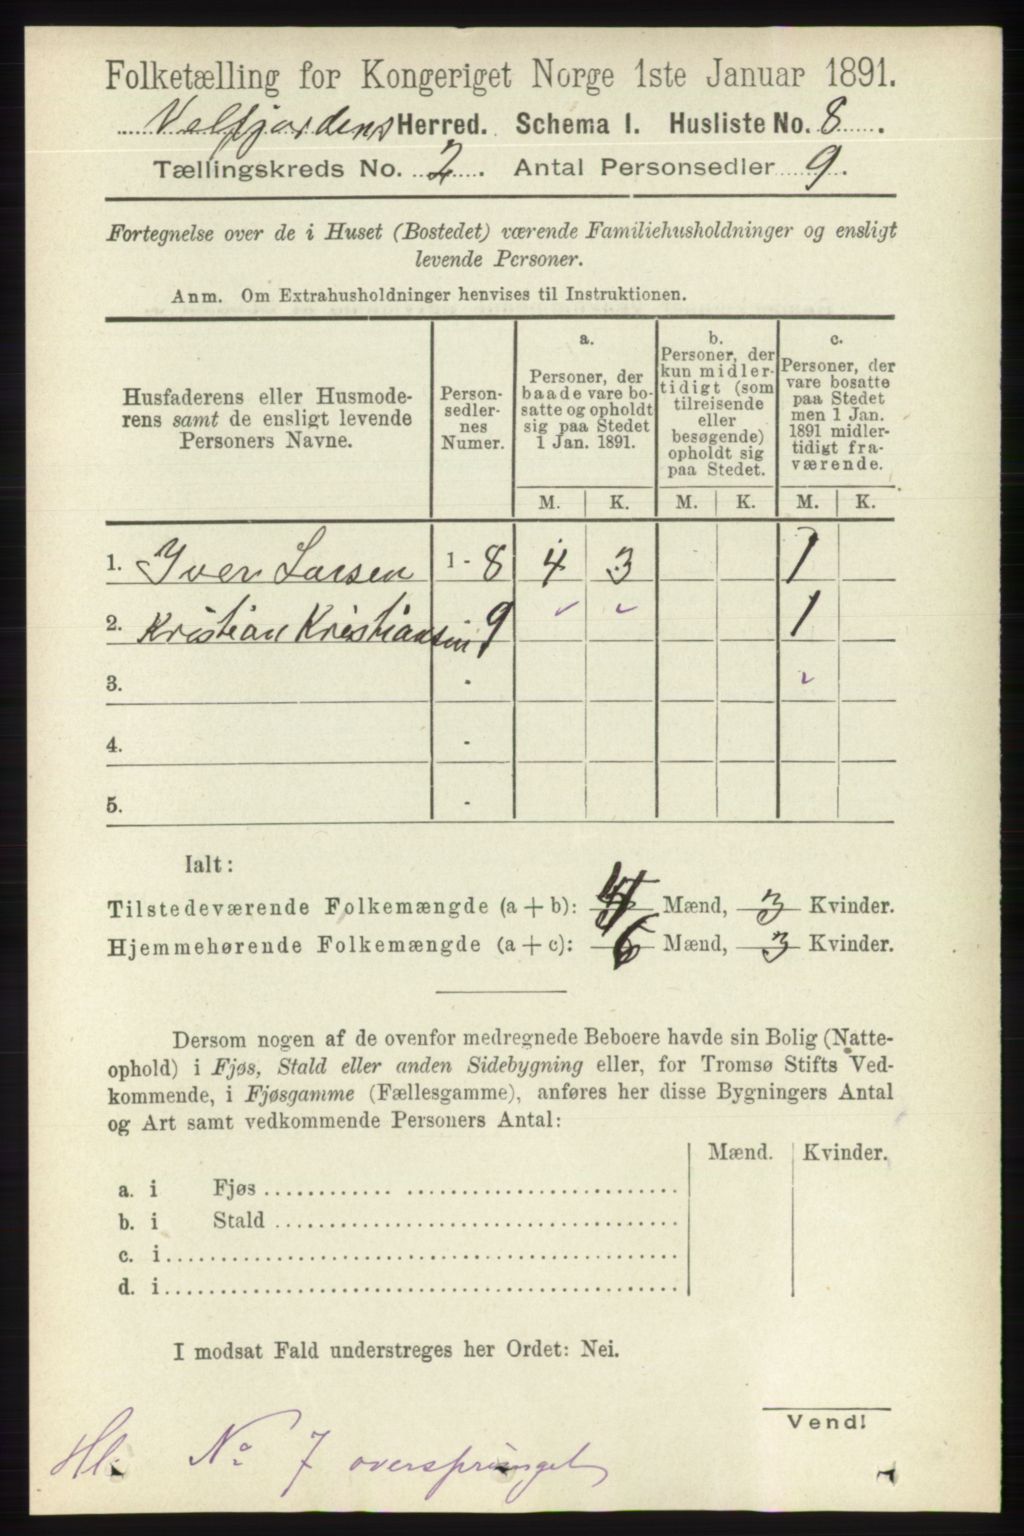 Folketælling for Kongeriget Norge 1ste Januar 1891.
Velfjordens Herred. Schema I. Husliste No. 8.
Tællingskreds No. 2. Antal Personsedler 9.
Fortegnelse over de i Huset (Bostedet) værende Familiehusholdninger og ensligt
levende Personer.
Anm. Om Extrahusholdninger henvises til Instruktionen.
Husfaderens eller Husmode-
rens samt de ensligt levende
Personers Navne.
Person-
sedler-
nes
Numer.
a.
Personer, der
baade vare bo-
satte og opholdt
sig paa Stedet
1 Jan. 1891.
b.
Personer, der
kun midler-
tidigt (som
tilreisende
eller
besøgende)
opholdt sig
paa Stedet.
c.
Personer, der
vare bosatte
paa Stedet
men 1 Jan.
1891 midler-
tidigt fra-
værende.
M. K. M. K. M. K.
1. Iver Larsen 1 - 8 4 3 1
2. Kristian Kristiansen 9 1
3. -
4. -
5. -
Ialt:
Tilstedeværende Folkemængde (a + b): 4 Mænd, 3 Kvinder.
Hjemmehørende Folkemængde (a + c): 6 Mænd, 3 Kvinder.
Dersom nogen af de ovenfor medregnede Beboere havde sin Bolig (Natte-
ophold) i Fjøs, Stald eller anden Sidebygning eller, for Tromsø Stifts Ved-
kommende, i Fjøsgamme (Fællesgamme), anføres her disse Bygningers Antal
og Art samt vedkommende Personers Antal:
Mænd. Kvinder.
a. i Fjøs
b. i Stald
c. i
d. i
I modsat Fald understreges her Ordet: Nei.
Vend!
Hl. No 7 oversprunget